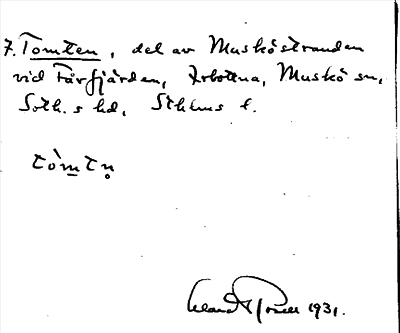 7. Tomten, del av Musköstranden
vid Fårfjärden, Arbottna, Muskö sn,
Soth.s hd, Sthlms l.
tòmtn̥
1931.